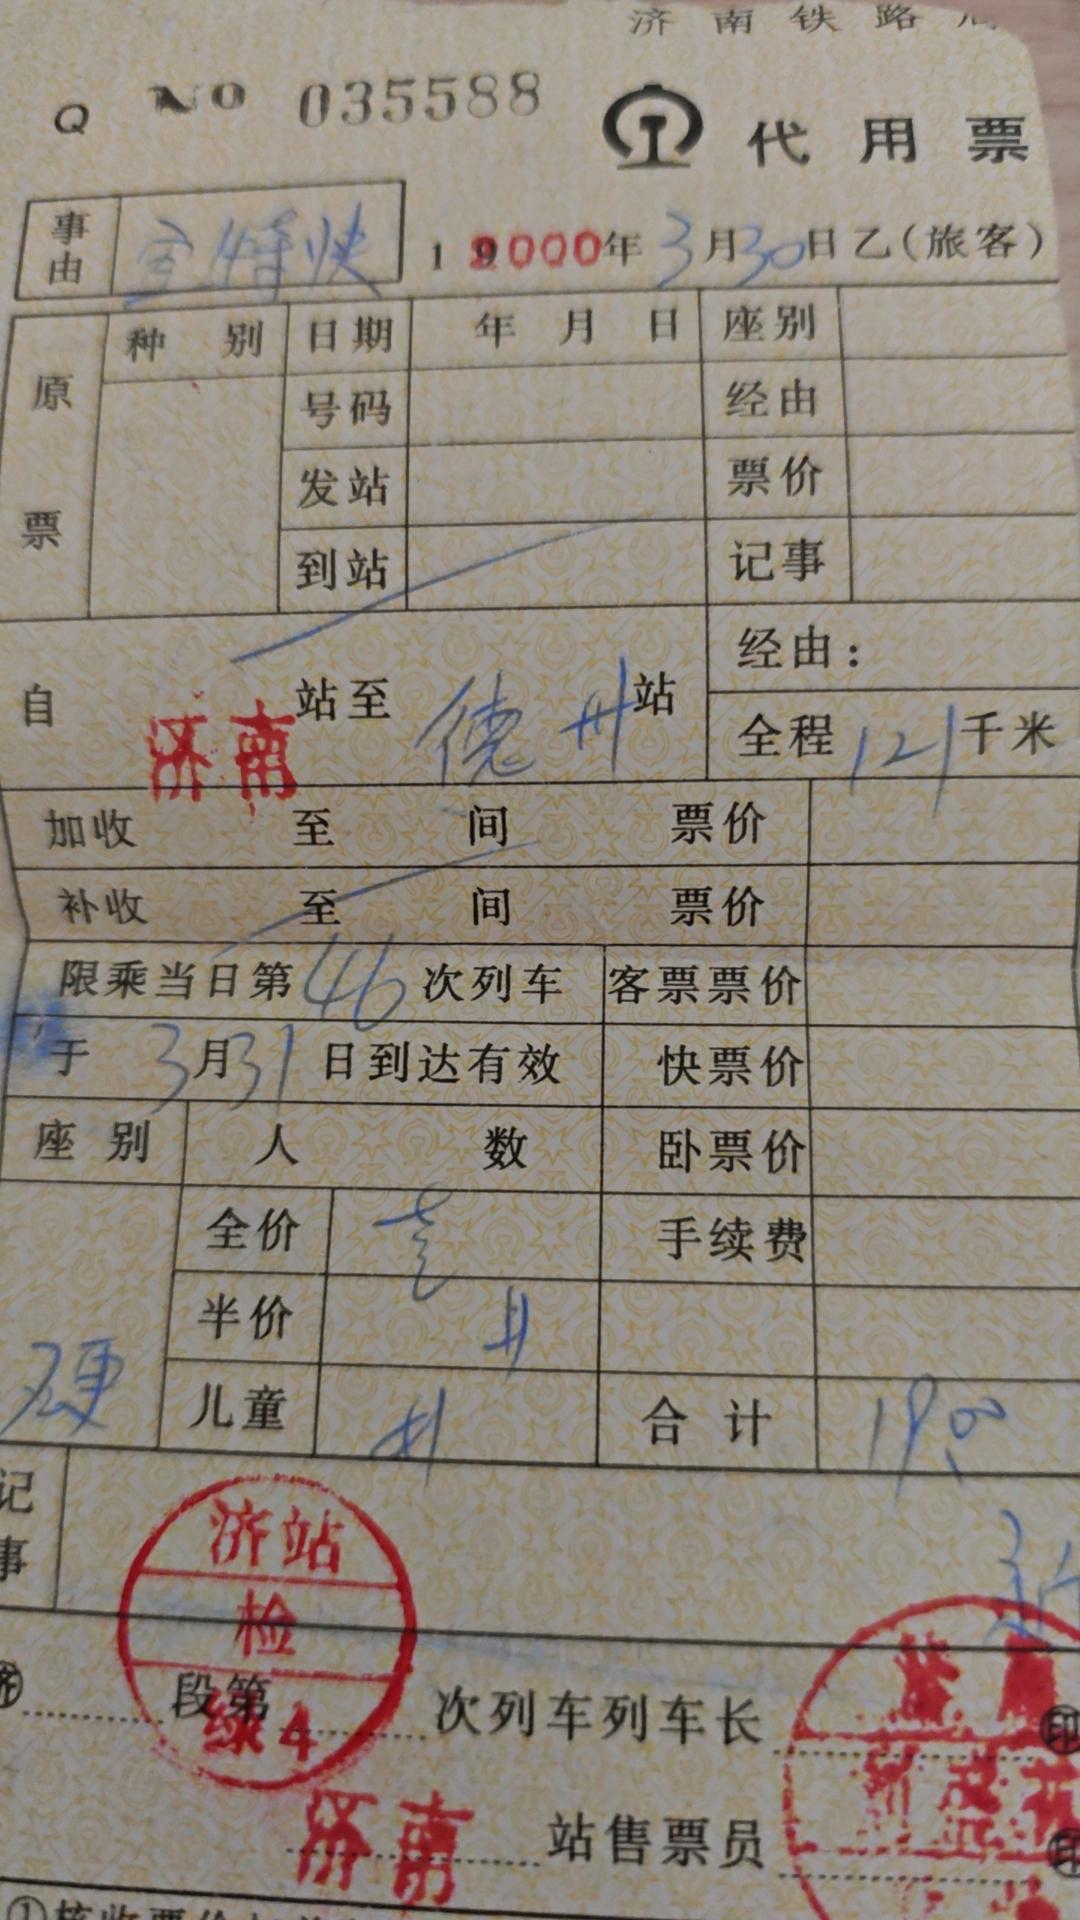 济南铁路局
Q No 035588 代用票
事由 空特快 2000年3月30日 乙(旅客)
原票 种别 日期 年 月 日 座别
号码 经由
发站 票价
到站 记事
自 济南 站至 德州 站 经由:
全程 121 千米
加收 至 间 票价
补收 至 间 票价
限乘当日第 46 次列车 客票票价
于 3月31日到达有效 快票价
座别 人数 卧票价
硬 全价 壹 手续费
半价
儿童 合计 19.00
记事
济站
检
续4
段第 次列车列车长 印
济南 站售票员 印